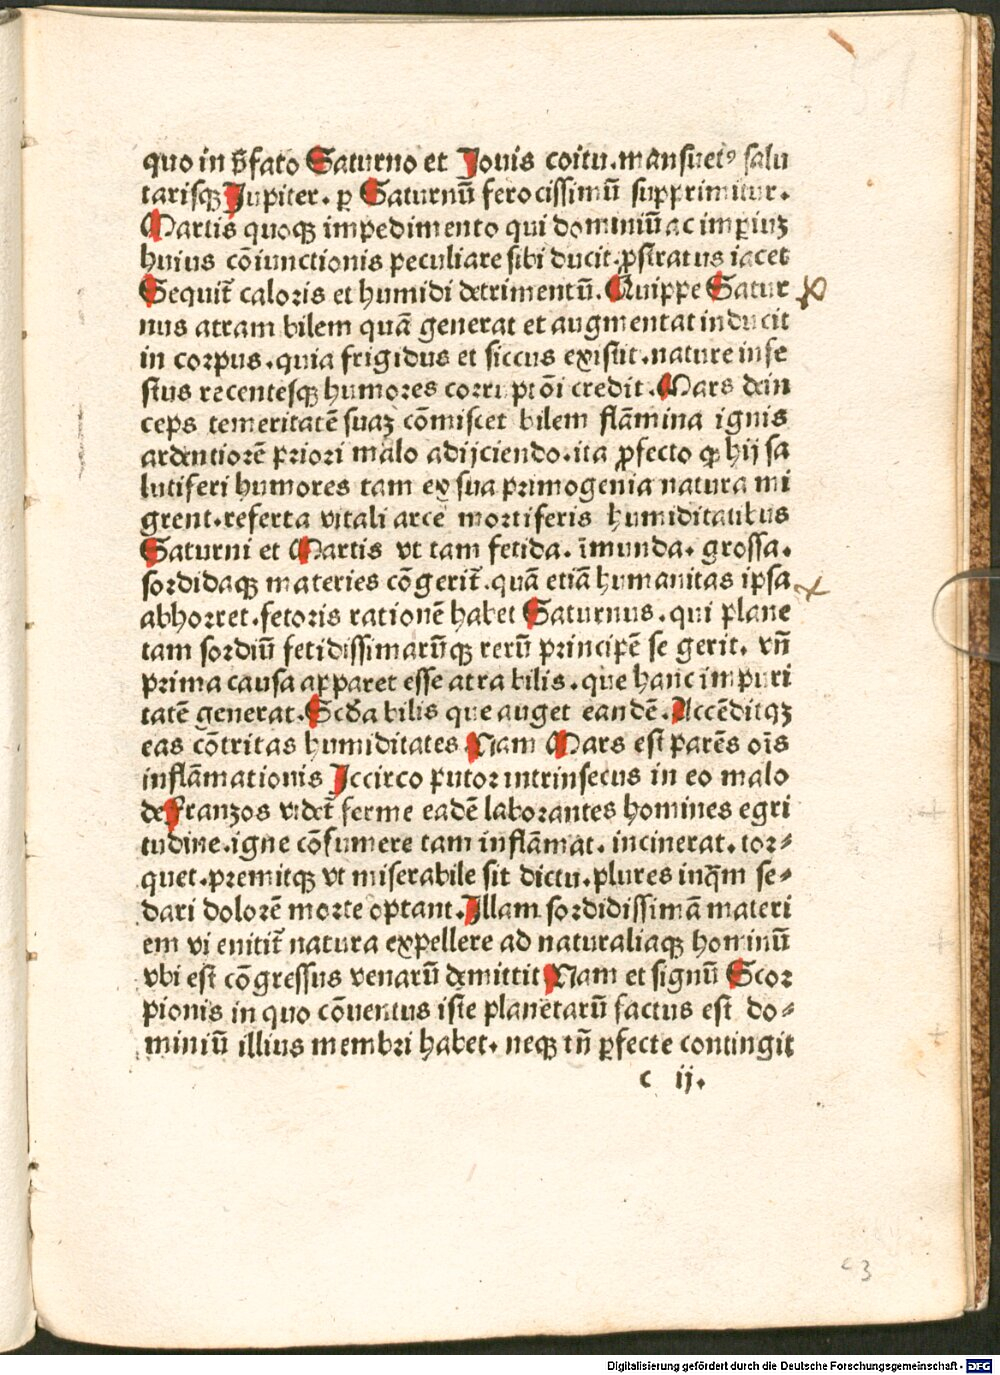 quo in p̄fato Saturno et Jouis coitu. mansuetꝰ salu
tarisqꝫ Jupiter. ꝑ Saturnū ferocissimū supprimitur.
Martis quoqꝫ impedimento qui dominiū ac imꝑiuꝫ
huius cōiunctionis peculiare sibi ducit. ꝓstratus iacet
Sequit̄ caloris et humidi detrimentū. Quippe Satur
nus atram bilem quā generat et augmentat inducit
in corpus. quia frigidus et siccus existit. nature infe
stus recentesqꝫ humores corrūptōi credit. Mars dein
ceps temeritatē suaꝫ cōmiscet bilem flāmina ignis
ardentiorē priori malo adijciendo. ita ꝓfecto ꝙ hij sa
lutiferi humores tam ex sua primogenia natura mi
grent. referta vitali arce mortiferis humiditatibus
Saturni et Martis vt tam fetida. īmunda. grossa.
sordidaqꝫ materies cōgerit̄. quā etiā humanitas ipsa
abhorret. fetoris rationē habet Saturnus. qui plane
tam sordiū fetidissimarūqꝫ rerū principē se gerit. vn̄
prima causa apparet esse atra bilis. que hanc impuri
tatē generat. Scd̄a bilis que auget eandē. Accēditqꝫ
eas cōtritas humiditates Nam Mars est parēs oīs
inflāmationis Jccirco putor intrinsecus in eo malo
de Franzos videt̄ ferme eadē laborantes homines egri
tudine. igne cōsumere tam inflāmat. incinerat. tor⸗
quet. premitqꝫ vt miserabile sit dictu. plures inq̄m se⸗
dari dolorē morte optant. Jllam sordidissimā materi
em vi enitit̄ natura expellere ad naturaliaqꝫ hominū
vbi est cōgressus venarū demittit Nam et signū Scor
pionis in quo cōuentus iste planetarū factus est do⸗
miniū illius membri habet. neqꝫ tn̄ ꝑfecte contingit
c ij.
c 3
Digitalisierung gefördert durch die Deutsche Forschungsgemeinschaft - DFG